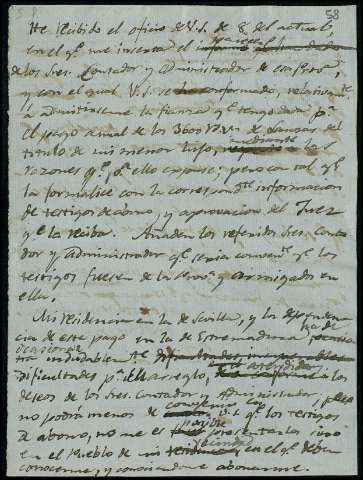 58
He recibido el oficio de V.S. de 8 del actual,
en el qe. me inserta el
de los Sres. Contador y Administrador de esa Prova.,
y con el qual V.S. se ha conformado, relativa
a admitirseme la fianza qe. tengo dada pa.
el pago anual de los 3600 rs. vn. de Lanzas del
titulo de mi menor hijo, mediante las
razones qe. pa. ello expuse; pero con tal qe.
la formalice con la correspondte. informacion
de testigos de abono, y aprovacion del Juez
qe. la reciba. Añaden los referidos Sres. Conta
dor y Administrador qe. seria convente. qe. los
testigos fuesen de la Prova. y arraigados en
ella.
Mi residencia en la de Sevilla, y la dependen
cia de este pago en la de Estremadura, ha de
ocasionar
indudablemte.
dificultades pa. el arreglo, a los
deseos de los Sres. Contador y Administrador, pues
no podrá menos de qe. los testigos
de abono, no me el presentarlos sino
en el Pueblo de mi vecindad, en el qe. deben
conocerme, y conociendome abonarme.